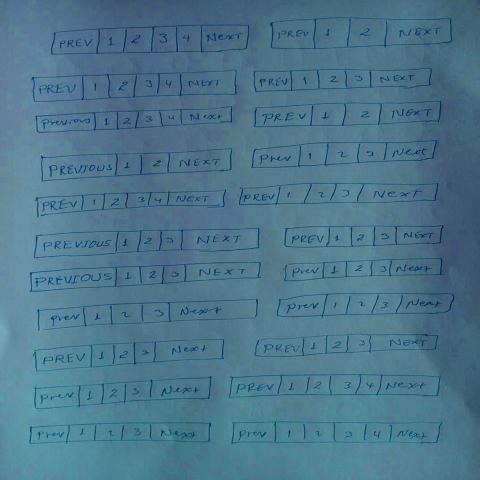 PREV 1 2 3 4 Next
PREV 1 2 NEXT
PREV 1 2 3 4 NEXT
PREV 1 2 3 NEXT
Previous 1 2 3 4 Next
PREV 1 2 NEXT
PREVIOUS 1 2 NEXT
Prev 1 2 3 Next
PREV 1 2 3 4 NEXT
PREV 1 2 3 Next
PREVIOUS 1 2 3 NEXT
PREV 1 2 3 NEXT
PREVIOUS 1 2 3 NEXT
prev 1 2 3 Next
prev 1 2 3 Next
prev 1 2 3 Next
PREV 1 2 3 Next
PREV 1 2 3 NEXT
prev 1 2 3 Next
PREV 1 2 3 4 Next
prev 1 2 3 Next
prev 1 2 3 4 Next